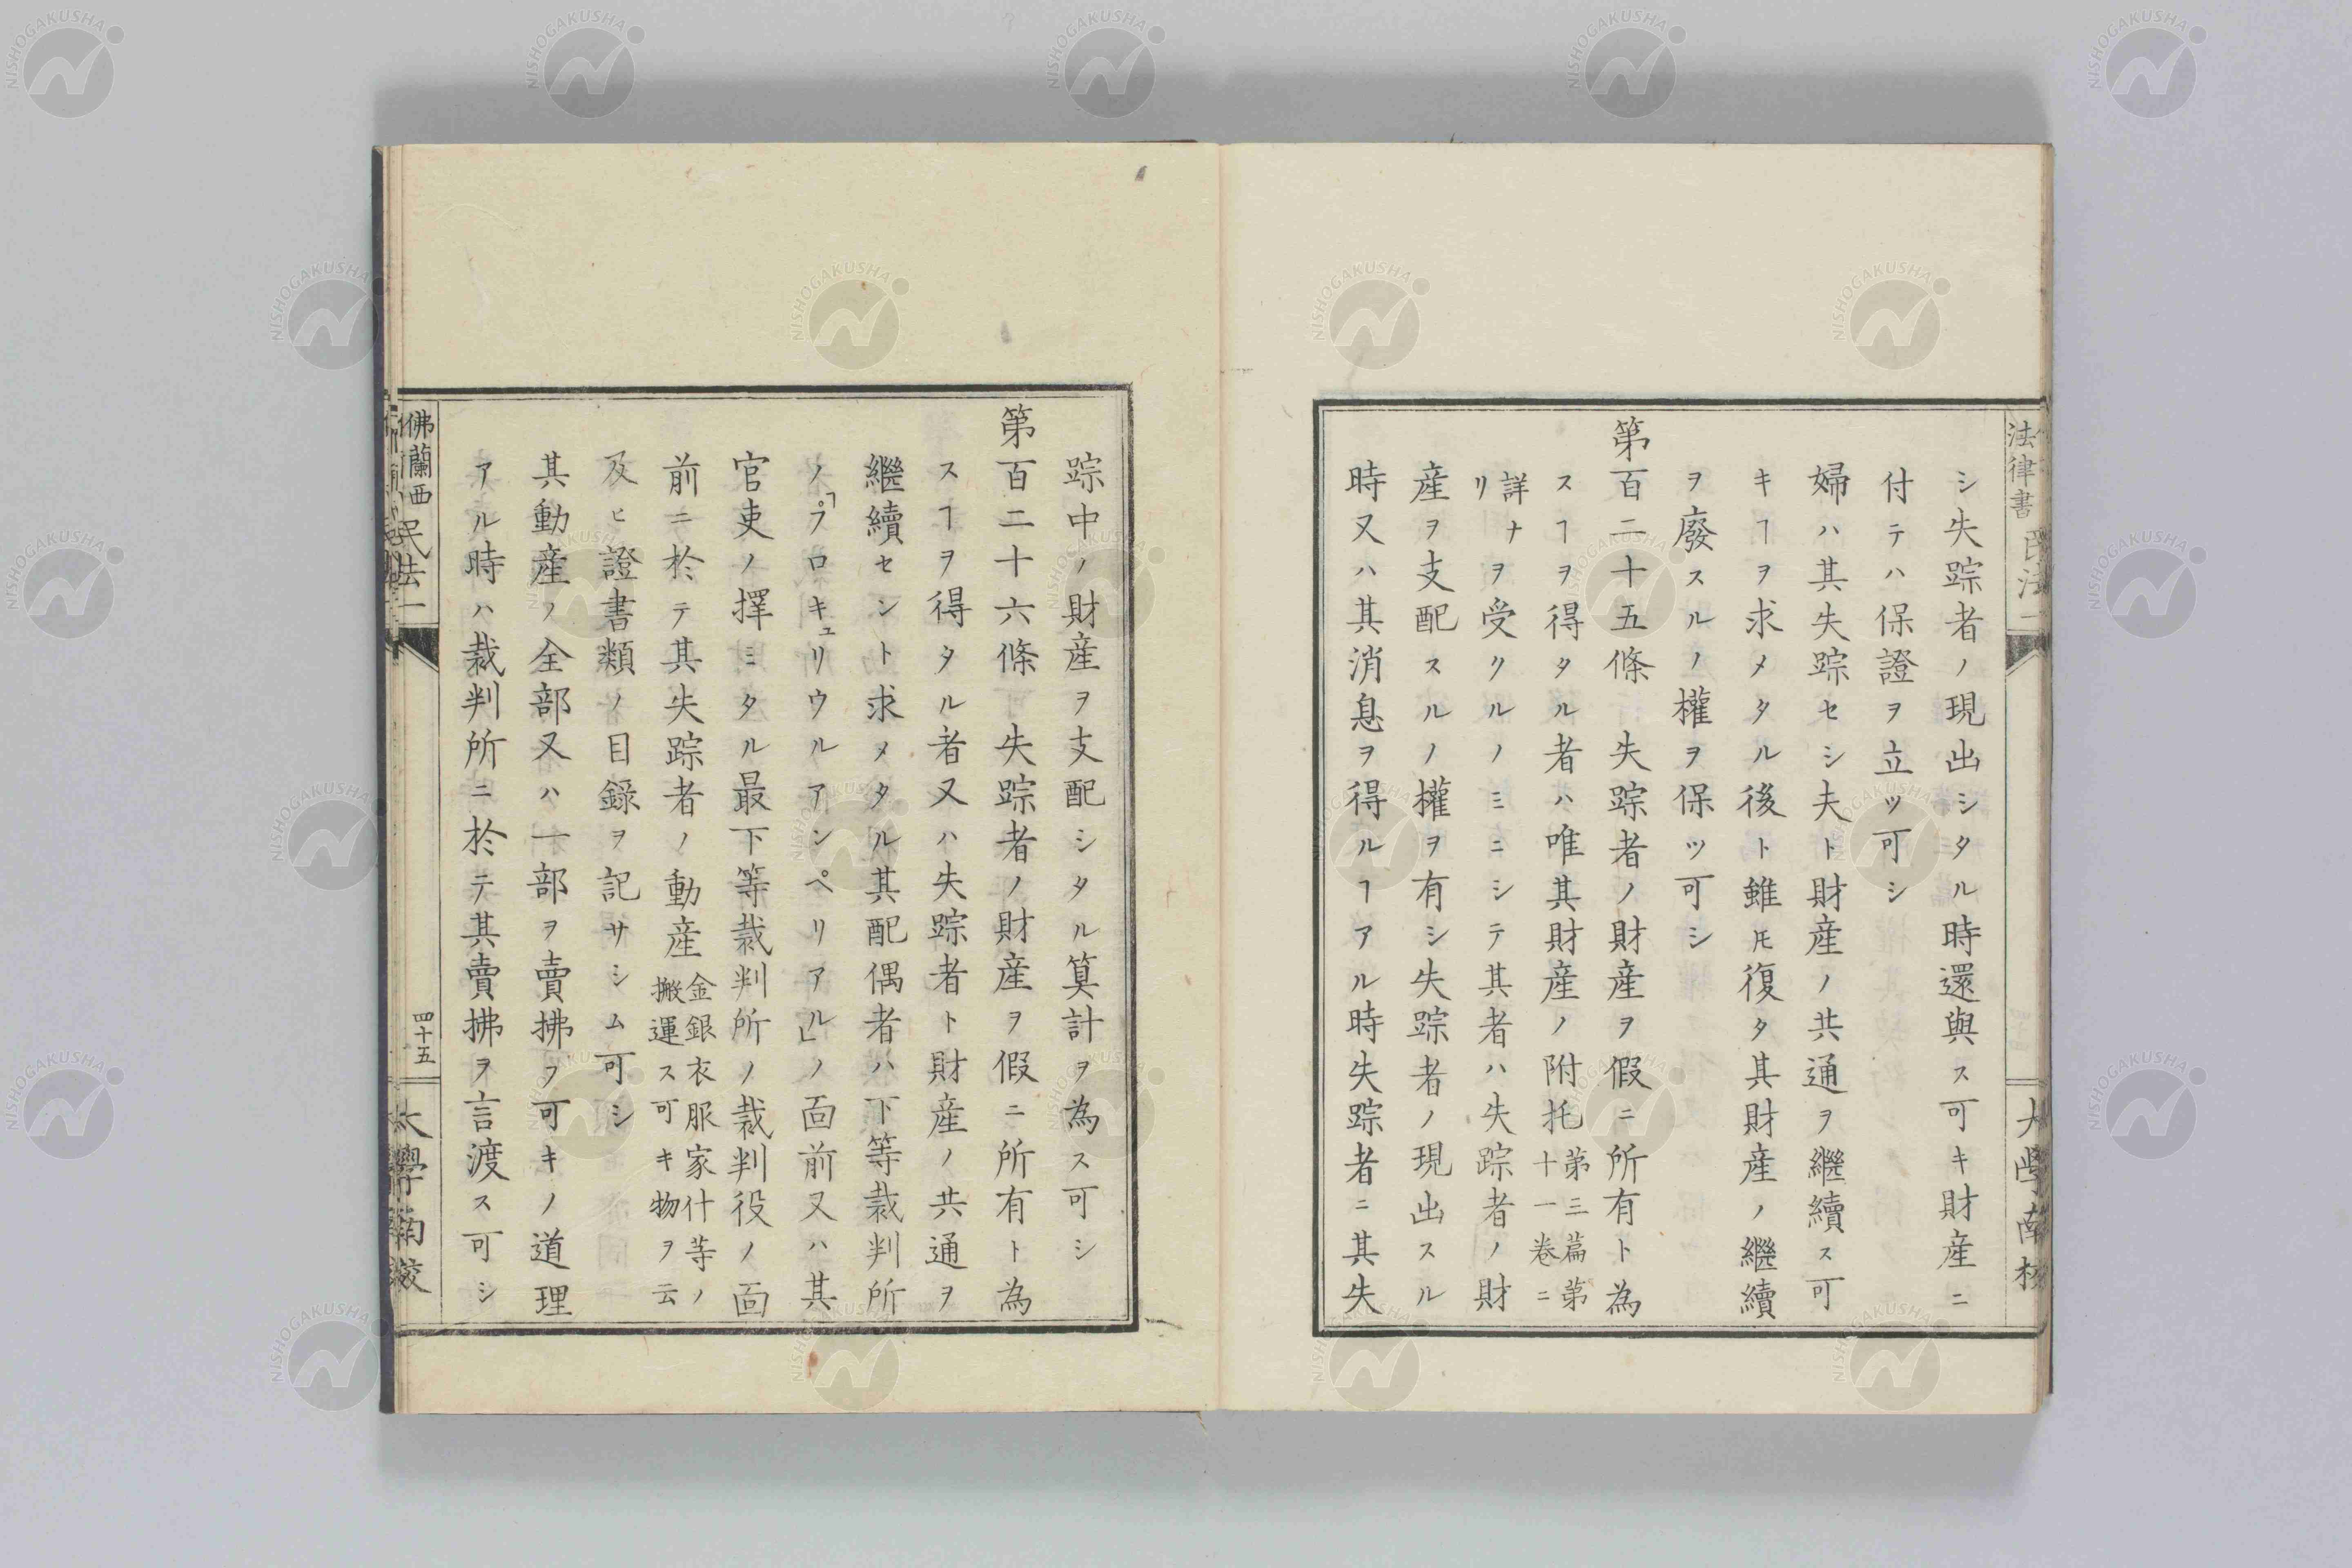 法律書 民法一
大學南校
シ失踪者ノ現出シタル時還與ス可キ財産ニ
付テハ保證ヲ立ツ可シ
婦ハ其失踪セシ夫ト財産ノ共通ヲ繼續ス可
キヿヲ求メタル後ト雖𪜈復タ其財産ノ繼續
ヲ廢スルノ權ヲ保ツ可シ
第百二十五條 失踪者ノ財産ヲ假ニ所有ト為
スヿヲ得タル者ハ唯其財産ノ附托第三篇第十一巻ニ
詳ナリヲ受クルノミニシテ其者ハ失踪者ノ財
産ヲ支配スルノ權ヲ有シ失踪者ノ現出スル
時又ハ其消息ヲ得ルヿアル時失踪者ニ其失
踪中ノ財産ヲ支配シタル算計ヲ為ス可シ
第百二十六條 失踪者ノ財産ヲ假ニ所有ト為
スヿヲ得タル者又ハ失踪者ト財産ノ共通ヲ
繼續セント求メタル其配偶者ハ下等裁判所
ノ「プロキュリウルアンペリアル」ノ面前又ハ其
官吏ノ擇ミタル最下等裁判所ノ裁判役ノ面
前ニ於テ其失踪者ノ動産金銀衣服家什等ノ搬運ス可キ物ヲ云
及ヒ證書類ノ目録ヲ記サシム可シ
其動産ノ全部又ハ一部ヲ賣拂フ可キノ道理
アル時ハ裁判所ニ於テ其賣拂ヲ言渡ス可シ
佛蘭西 民法一
四十五
大學南校
NISHOGAKUSHA